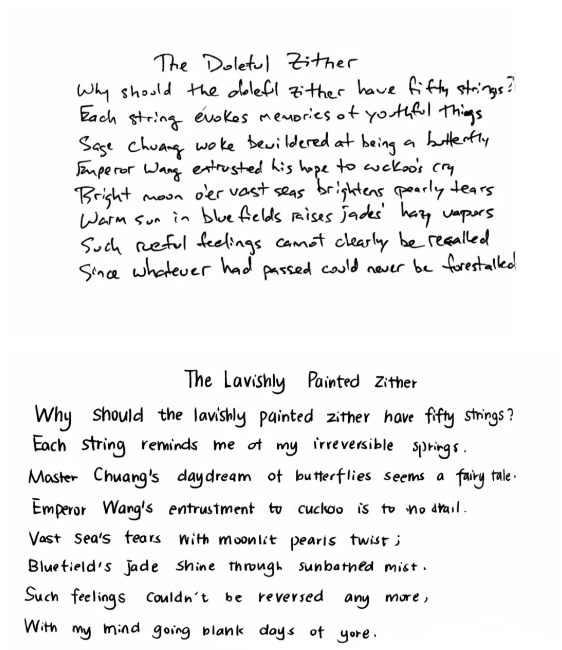 The Doleful Zither
Why should the dolefl zither have fifty strings?
Each string evokes memories of youthful things
Sage Chuang woke bewildered at being a butterfly
Emperor Wang entrusted his hope to cuckoo's cry
Bright moon o'er vast seas brightens pearly tears
Warm sun in blue fields raises jades' hazy vapors
Such rueful feelings cannot clearly be recalled
Since whatever had passed could never be forestalled
The Lavishly Painted Zither
Why should the lavishly painted zither have fifty strings?
Each string reminds me of my irreversible springs.
Master Chuang's daydream of butterflies seems a fairy tale.
Emperor Wang's entrustment to cuckoo is to no avail.
Vast Sea's tears with moonlit pearls twist;
Bluefield's jade shine through sunbathed mist.
Such feelings couldn't be reversed any more,
With my mind going blank days of yore.